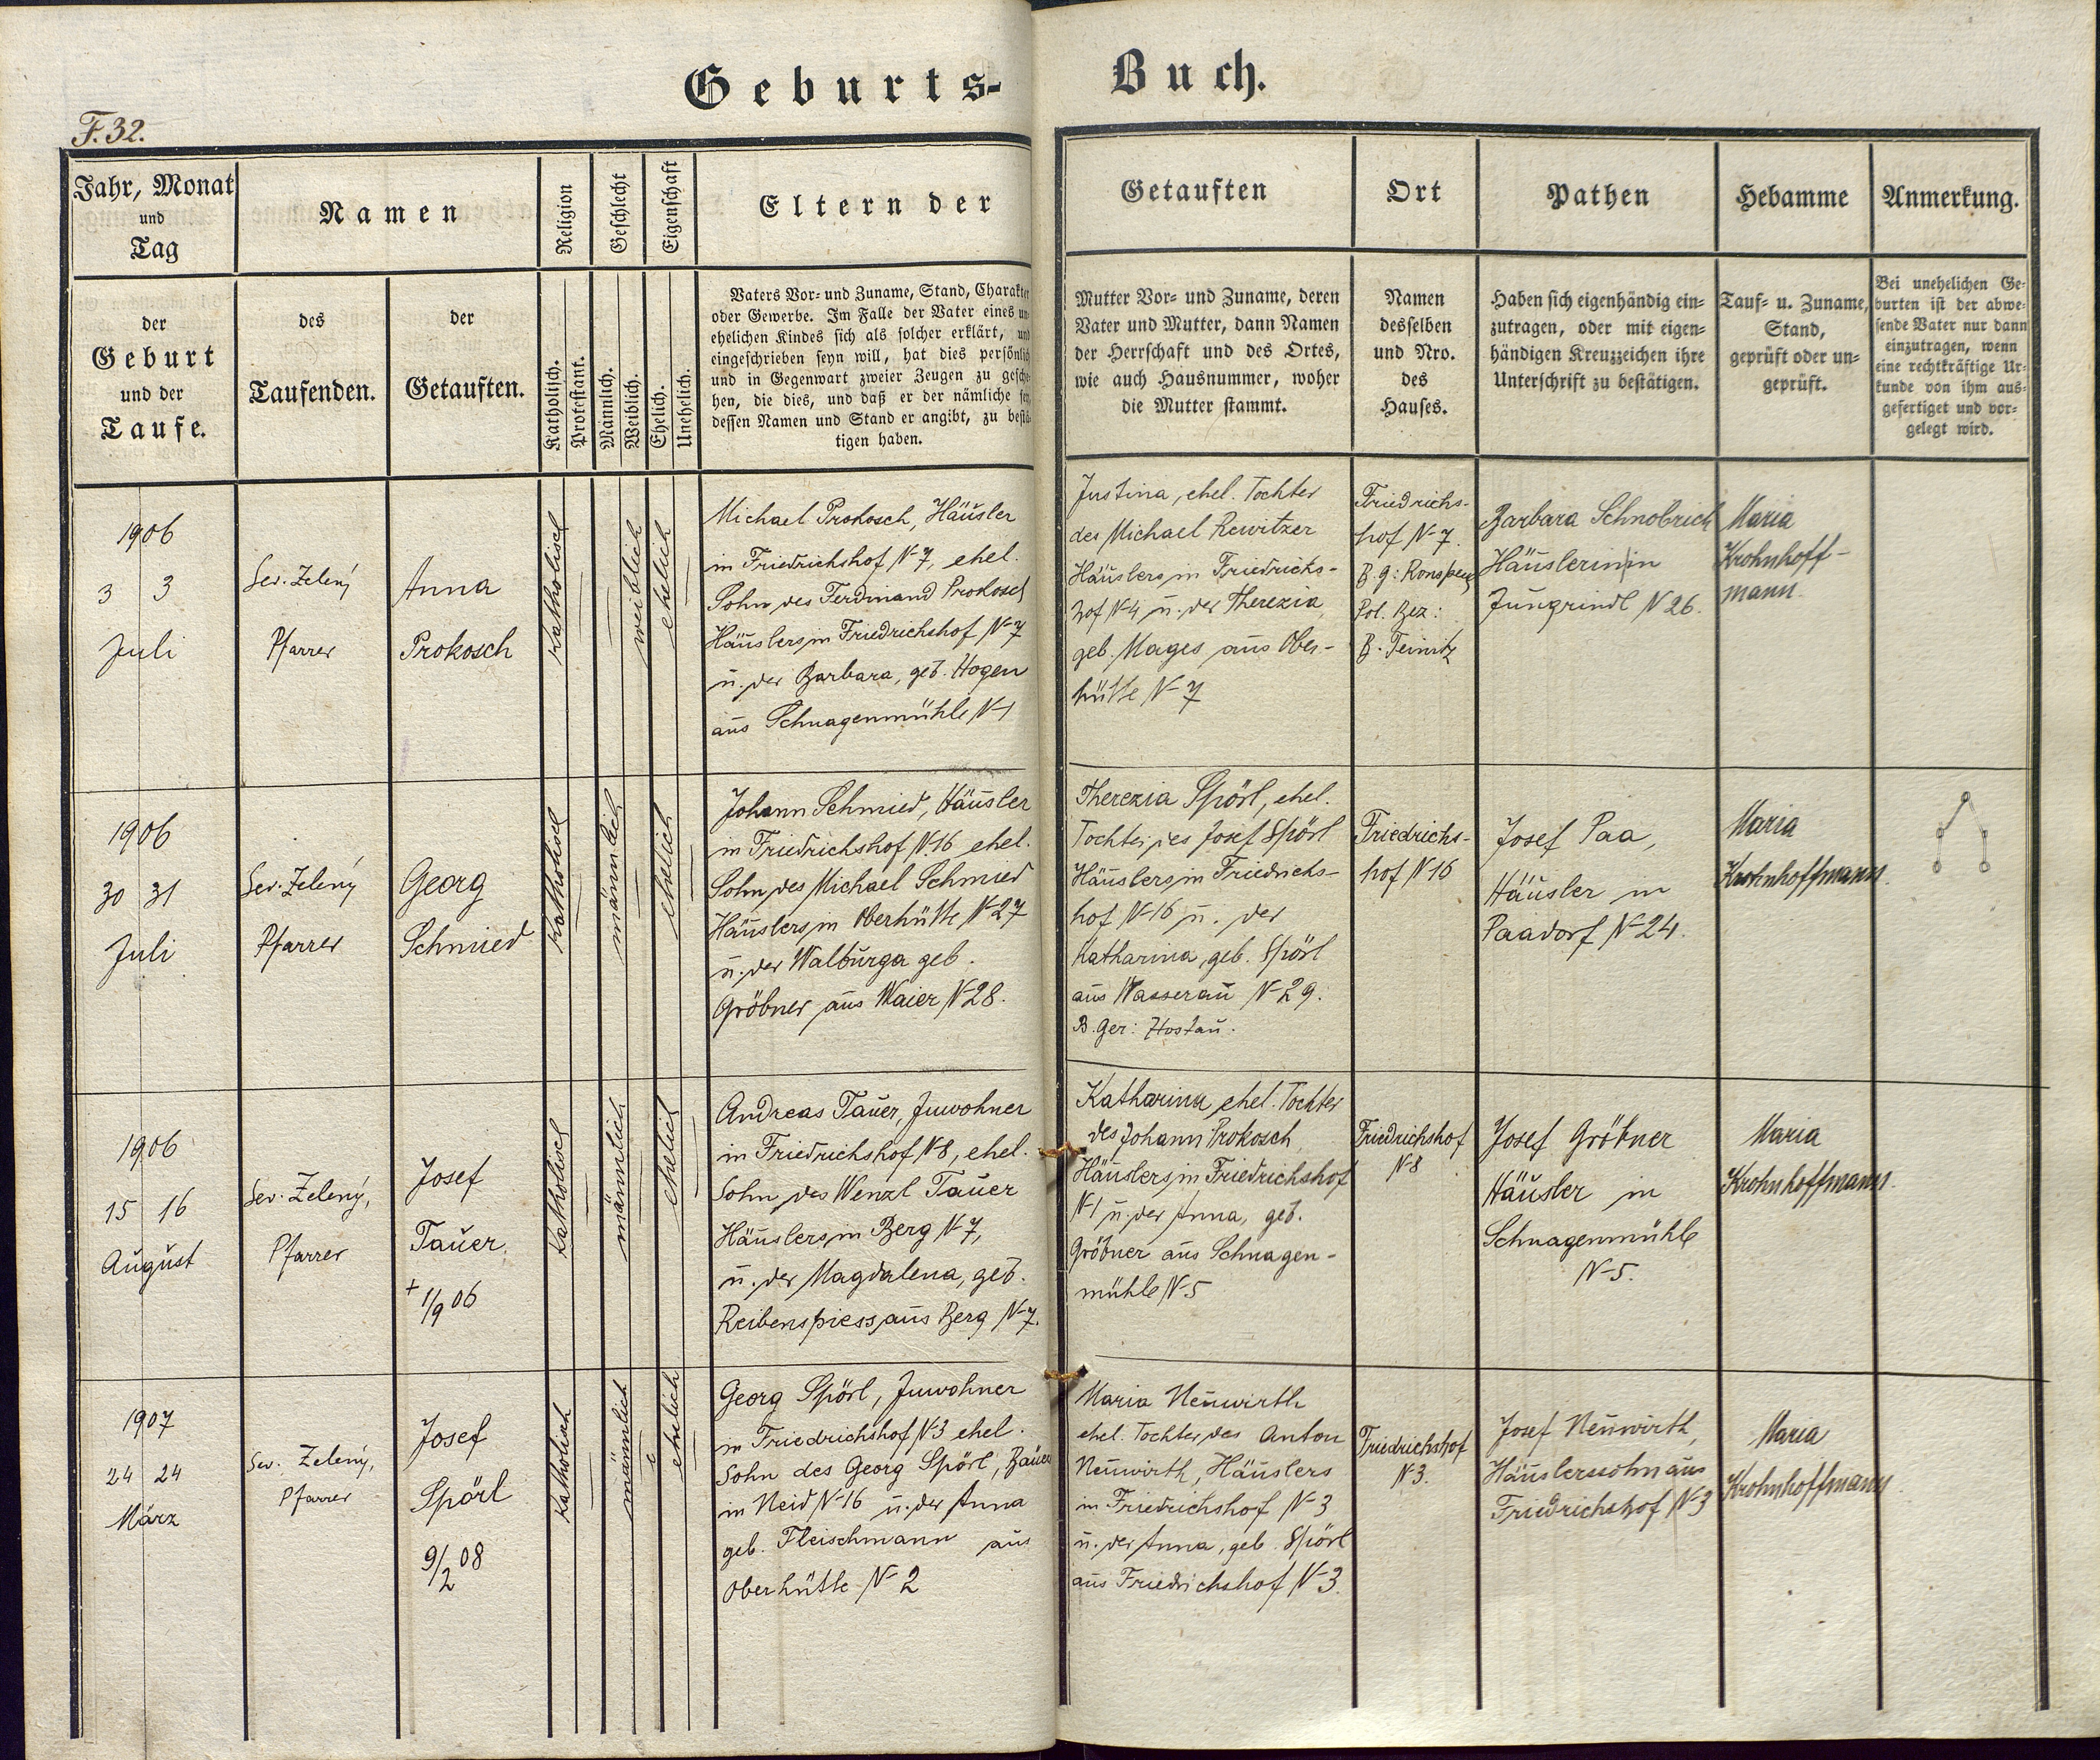 Geburts-
Buch.
F. 32.
Jahr, Monat
und
Tag
Namen
Religion
Geschlecht
Eigenschaft
Eltern der
Getauften
Ort
Pathen
Hebamme
Anmerkung.
der
Geburt
und der
Taufe.
des
Taufenden.
der
Getauften.
Katholisch.
Protestant.
Männlich.
Weiblich.
Ehelich.
Unehelich.
Vaters Vor- und Zuname, Stand, Charakter
oder Gewerbe. Im Falle der Vater eines un-
ehelichen Kindes sich als solcher erklärt, und
eingeschrieben seyn will, hat dies persönlich
und in Gegenwart zweier Zeugen zu gesche-
hen, die dies, und daß er der nämliche sey,
dessen Namen und Stand er angibt, zu bestä-
tigen haben.
Mutter Vor- und Zuname, deren
Vater und Mutter, dann Namen
der Herrschaft und des Ortes,
wie auch Hausnummer, woher
die Mutter stammt.
Namen
desselben
und Nro.
des
Hauses.
Haben sich eigenhändig ein-
zutragen, oder mit eigen-
händigen Kreuzzeichen ihre
Unterschrift zu bestätigen.
Tauf- u. Zuname,
Stand,
geprüft oder un-
geprüft.
Bei unehelichen Ge-
burten ist der abwe-
sende Vater nur dann
einzutragen, wenn
eine rechtkräftige Ur-
kunde von ihm aus-
gefertiget und vor-
gelegt wird.
1906
3 3
Juli
Sev. Zelený
Pfarrer
Anna
Prokosch
katholisch
weiblich
ehelich
Michael Prokosch, Häusler
in Friedrichshof N-7, ehel.
Sohn des Ferdinand Prokosch
Häuslers in Friedrichshof N-7
u. der Barbara, geb. Hogen
aus Schnagenmühle N-1
Justina, ehel. Tochter
des Michael Rewitzer
Häuslers in Friedrichs-
hof N-4 u. der Therezia,
geb. Mages aus Ober-
hütte N-7
Friedrichs-
hof N-7
B. g: Ronsperg
Pol. Bez:
B. Teinitz
Barbara Schnobrich
Häuslerin in
Jungrindl N 26.
Maria
Krohnhoff-
mann.
1906
30 31
Juli
Sev. Zelený
Pfarrer
Georg
Schmied
katholisch
männlich
ehelich
Johann Schmied, Häusler
in Friedrichshof N.16 ehel.
Sohn des Michael Schmied
Häuslers in Oberhütte N-27
u. der Walburga geb.
Gröbner aus Waier N-28.
Therezia Spörl, ehel.
Tochter des Josef Spörl
Häuslers in Friedrichs-
hof N-16 u. der
Katharina, geb. Spörl
aus Wasserau N-29.
B. Ger: Hostau.
Friedrichs-
hof N-16
Josef Paa,
Häusler in
Paadorf N-24.
Maria
Krohnhoffmann.
1906
15 16
August
Sev. Zelený,
Pfarrer
Josef
Tauer
+ 1/9 06
katholisch
männlich
ehelich
Andreas Tauer, Inwohner
in Friedrichshof N-8, ehel.
Sohn des Wenzl Tauer
Häuslers in Berg N-7,
u. der Magdalena, geb.
Reibenspiess aus Berg N-7.
Katharina ehel. Tochter
des Johann Prokosch
Häuslers in Friedrichshof
N-1 u. der Anna, geb.
Gröbner aus Schnagen-
mühle N-5
Friedrichshof
N-8
Josef Gröbner
Häusler in
Schnagenmühle
N-5.
Maria
Krohnhoffmann.
1907
24 24
März
Sev. Zelený,
Pfarrer
Josef
Spörl
9/2 08
katholisch
männlich
ehelich
Georg Spörl, Inwohner
in Friedrichshof N-3 ehel.
Sohn des Georg Spörl, Bauer
in Neid N-16 u. der Anna
geb. Fleischmann aus
Oberhütte N-2
Maria Neuwirth
ehel. Tochter des Anton
Neuwirth, Häuslers
in Friedrichshof N-3
u. der Anna, geb. Spörl
aus Friedrichshof N-3.
Friedrichshof
N-3.
Josef Neuwirth,
Häuslerssohn aus
Friedrichshof N-3
Maria
Krohnhoffmann.